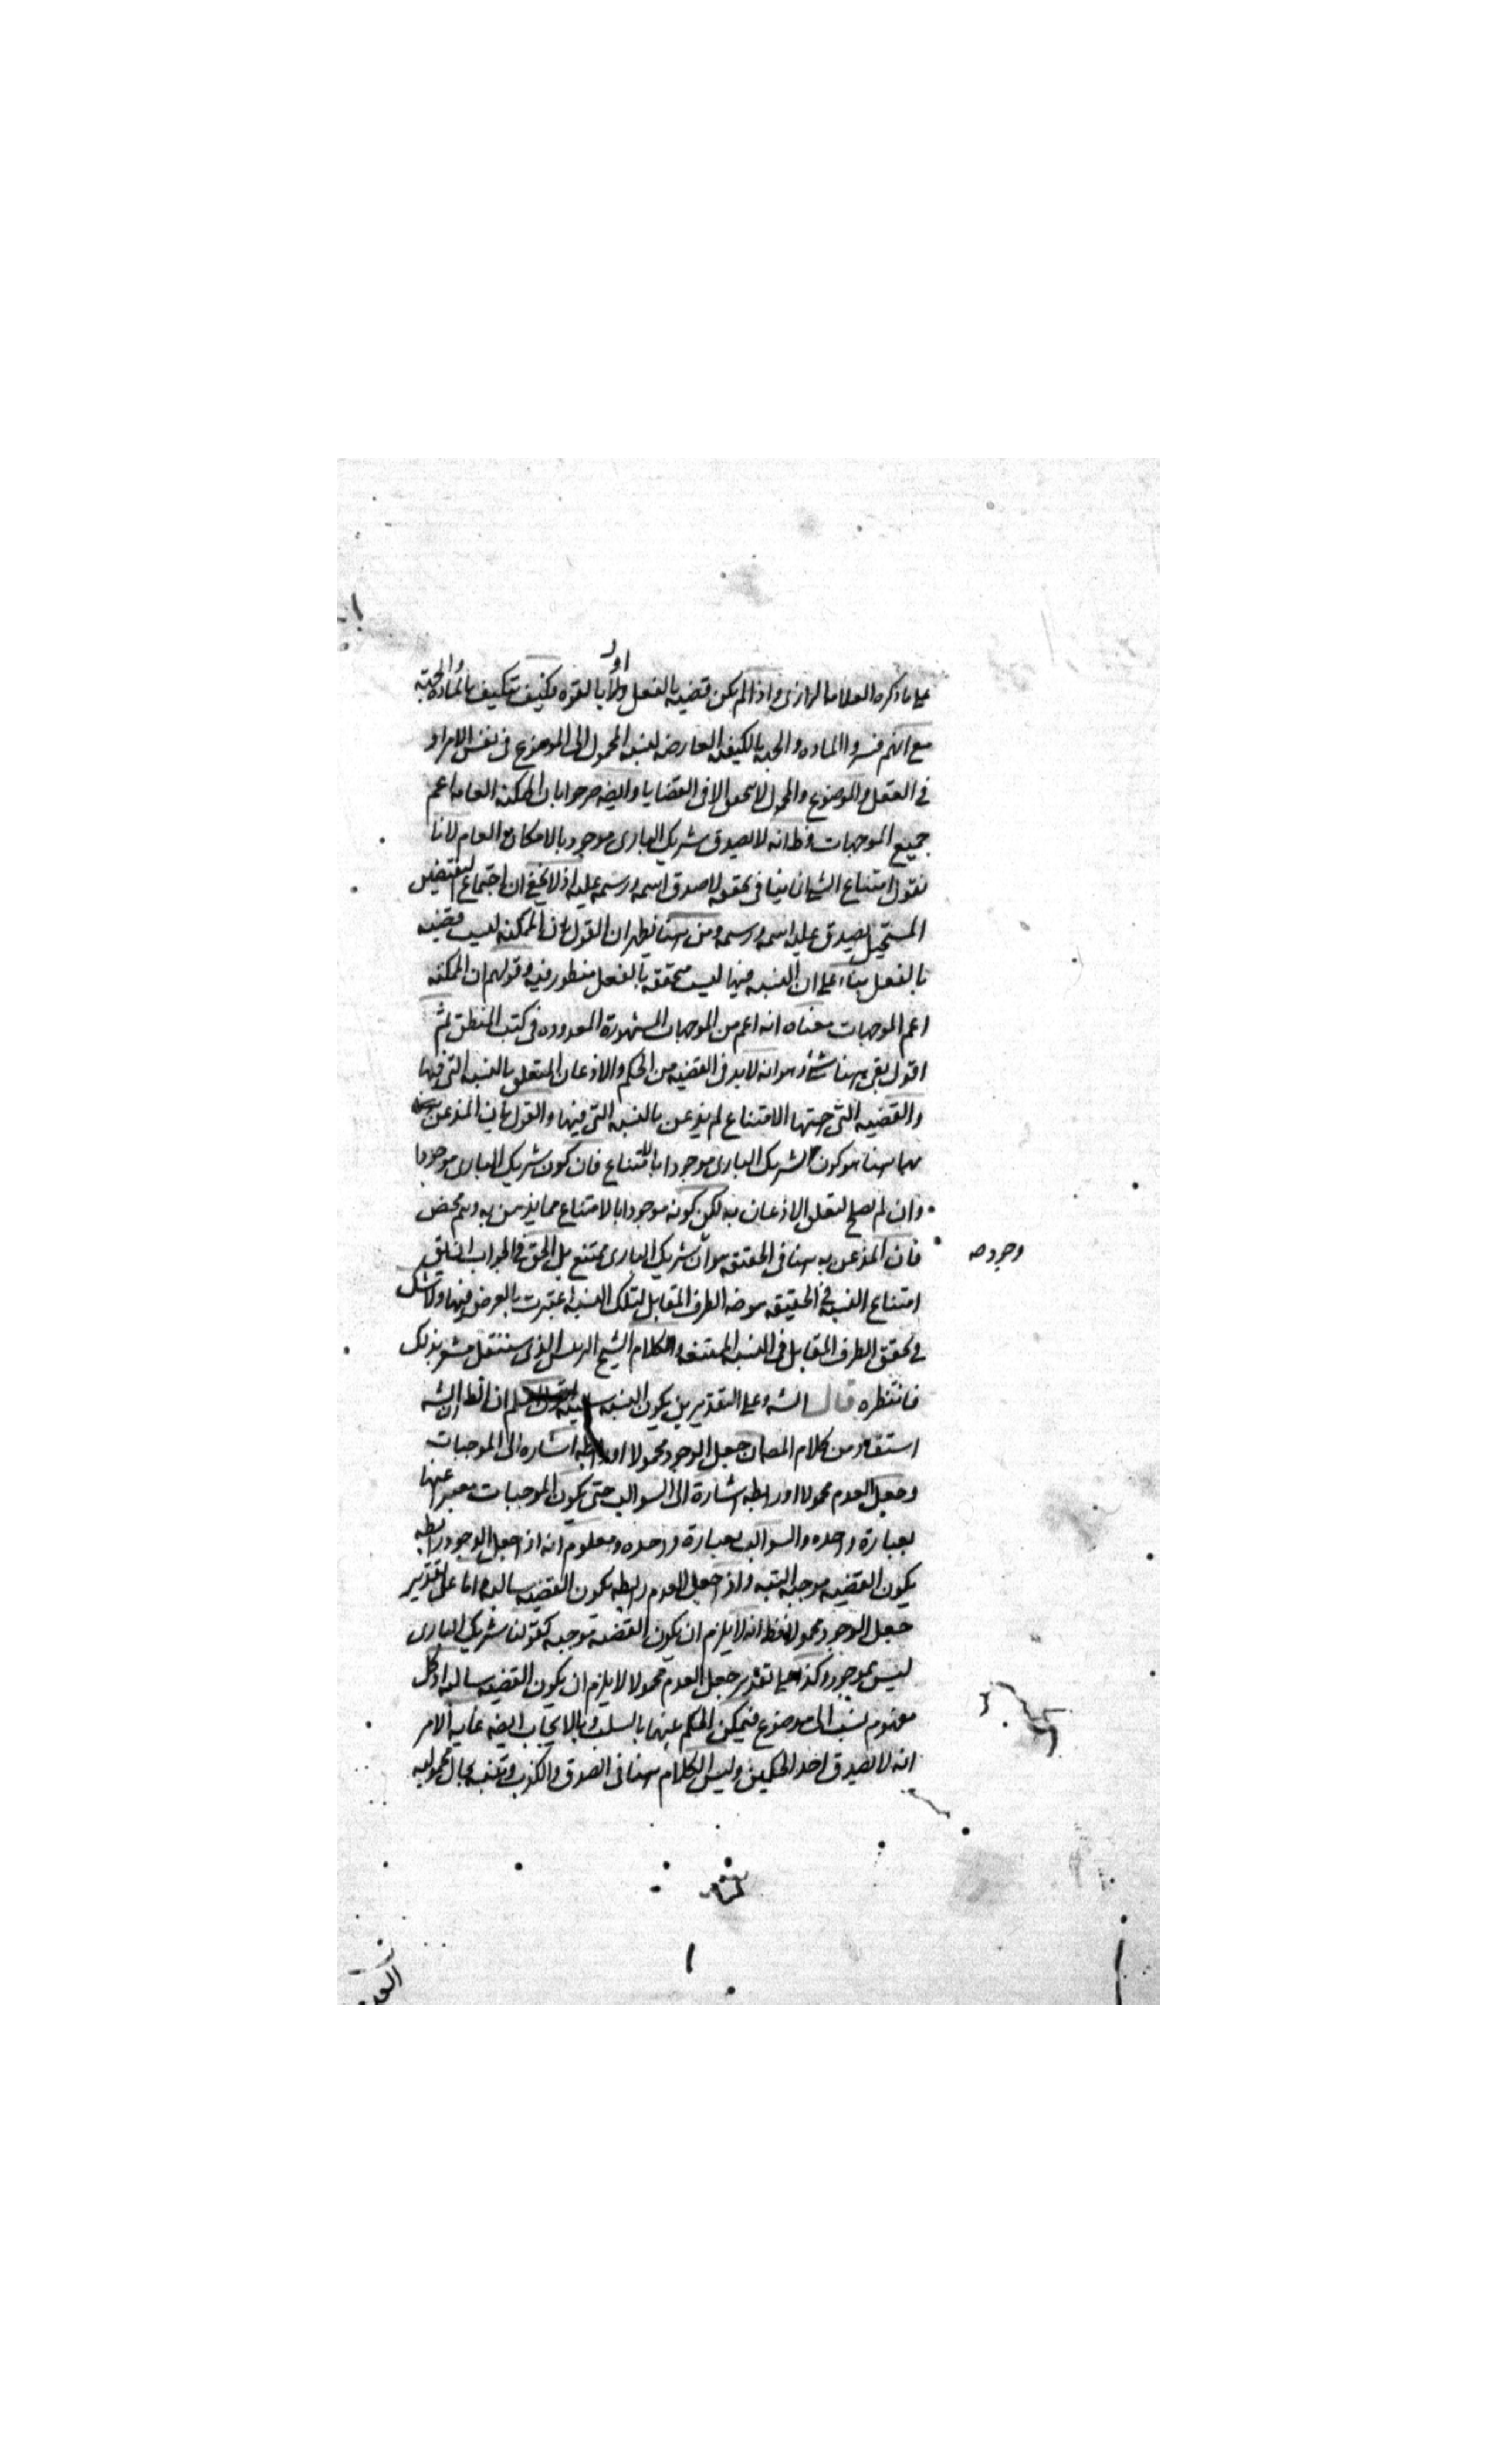 على ما ذكره العلامه الرازى واذا لم يكن قضيه بالفعل ولا بالقوه فكيف تتكيف بالماده والجهة
مع انهم فسروا الماده والجهه بالكيفيه العارضه لنسبه المحمول الى الموضوع فى نفس الامر او
فى العقل والموضوع والمحمول لا يتحقق الا فى القضايا وايضه صرحوا بان الممكنه العامه اعم
جميع الموجهات وظ انه لا يصدق شريك البارى موجود بالامكان العام لانا
نقول امتناع الشئ انما ينافى تحققه لا صدق اسمه ورسمه عليه اذ لا يخفى ان اجتماع النقيضين
المستحيل يصدق عليه اسمه ورسمه ومن هنا يظهر ان القول بان الممكنه ليست قضيه
بالفعل بناء على ان النسبه فيها ليست متحققه بالفعل منظور فيه وقولهم ان الممكنه
اعم الموجهات معناه انه اعم من الموجهات المشهورة المعدوده فى كتب المنطق ثم
اقول بقى ههنا شئ وهو انه لا بد فى القضيه من الحكم والاذعان المتعلق بالنسبه التى فيها
والقضيه التى جهتها الامتناع لم يذعن بالنسبه التى فيها والقول بان المذعن
ههنا هو كون شريك البارى موجودا بالامتناع فان كون شريك البارى موجودا
وان لم يصلح لتعلق الاذعان به لكن كونه موجودا بالامتناع مما يذعن به وهم محض
فان المذعن به هنا فى الحقيقه هو ان شريك البارى ممتنع بل الحق فى الجواب ان يق
وجود صه
امتناع النسبه فى الحقيقه هو ضه الطرف المقابل لتلك النسبه اعتبرت بالعرض فيها ولا شك
فى تحقق الطرف المقابل فى النسبه الممتنعه وكلام الشيخ الرئيس الذى سننقل مشعر بذلك
فانتظره قال الشه وعلى التقديرين يكون النسبه ان الظ ان الشه
استفاد من كلام المصه ان جعل الوجود محمولا او رابطه اشاره الى الموجبات
وجعل العدم محمولا او رابطه اشارة الى السوالب حتى يكون الموجبات معبر عنها
بعبارة واحده والسوالب بعبارة واحده ومعلوم انه اذا جعل الوجود رابطه
يكون القضيه موجبه البته واذا جعل العدم رابطه يكون القضيه سالبه اما على تقدير
جعل الوجود محمولا فظ انه لا يلزم ان يكون القضيه موجبه كقولنا شريك البارى
ليس بموجود وكذا على تقدير جعل العدم محمولا لا يلزم ان يكون القضيه سالبه اذ كل
مفهوم نسب الى موضوع فيمكن الحكم بينها بالسلب وبالايجاب ايضه غايه الامر
انه لا يصدق احد الحكمين وليس الكلام ههنا فى الصدق والكذب